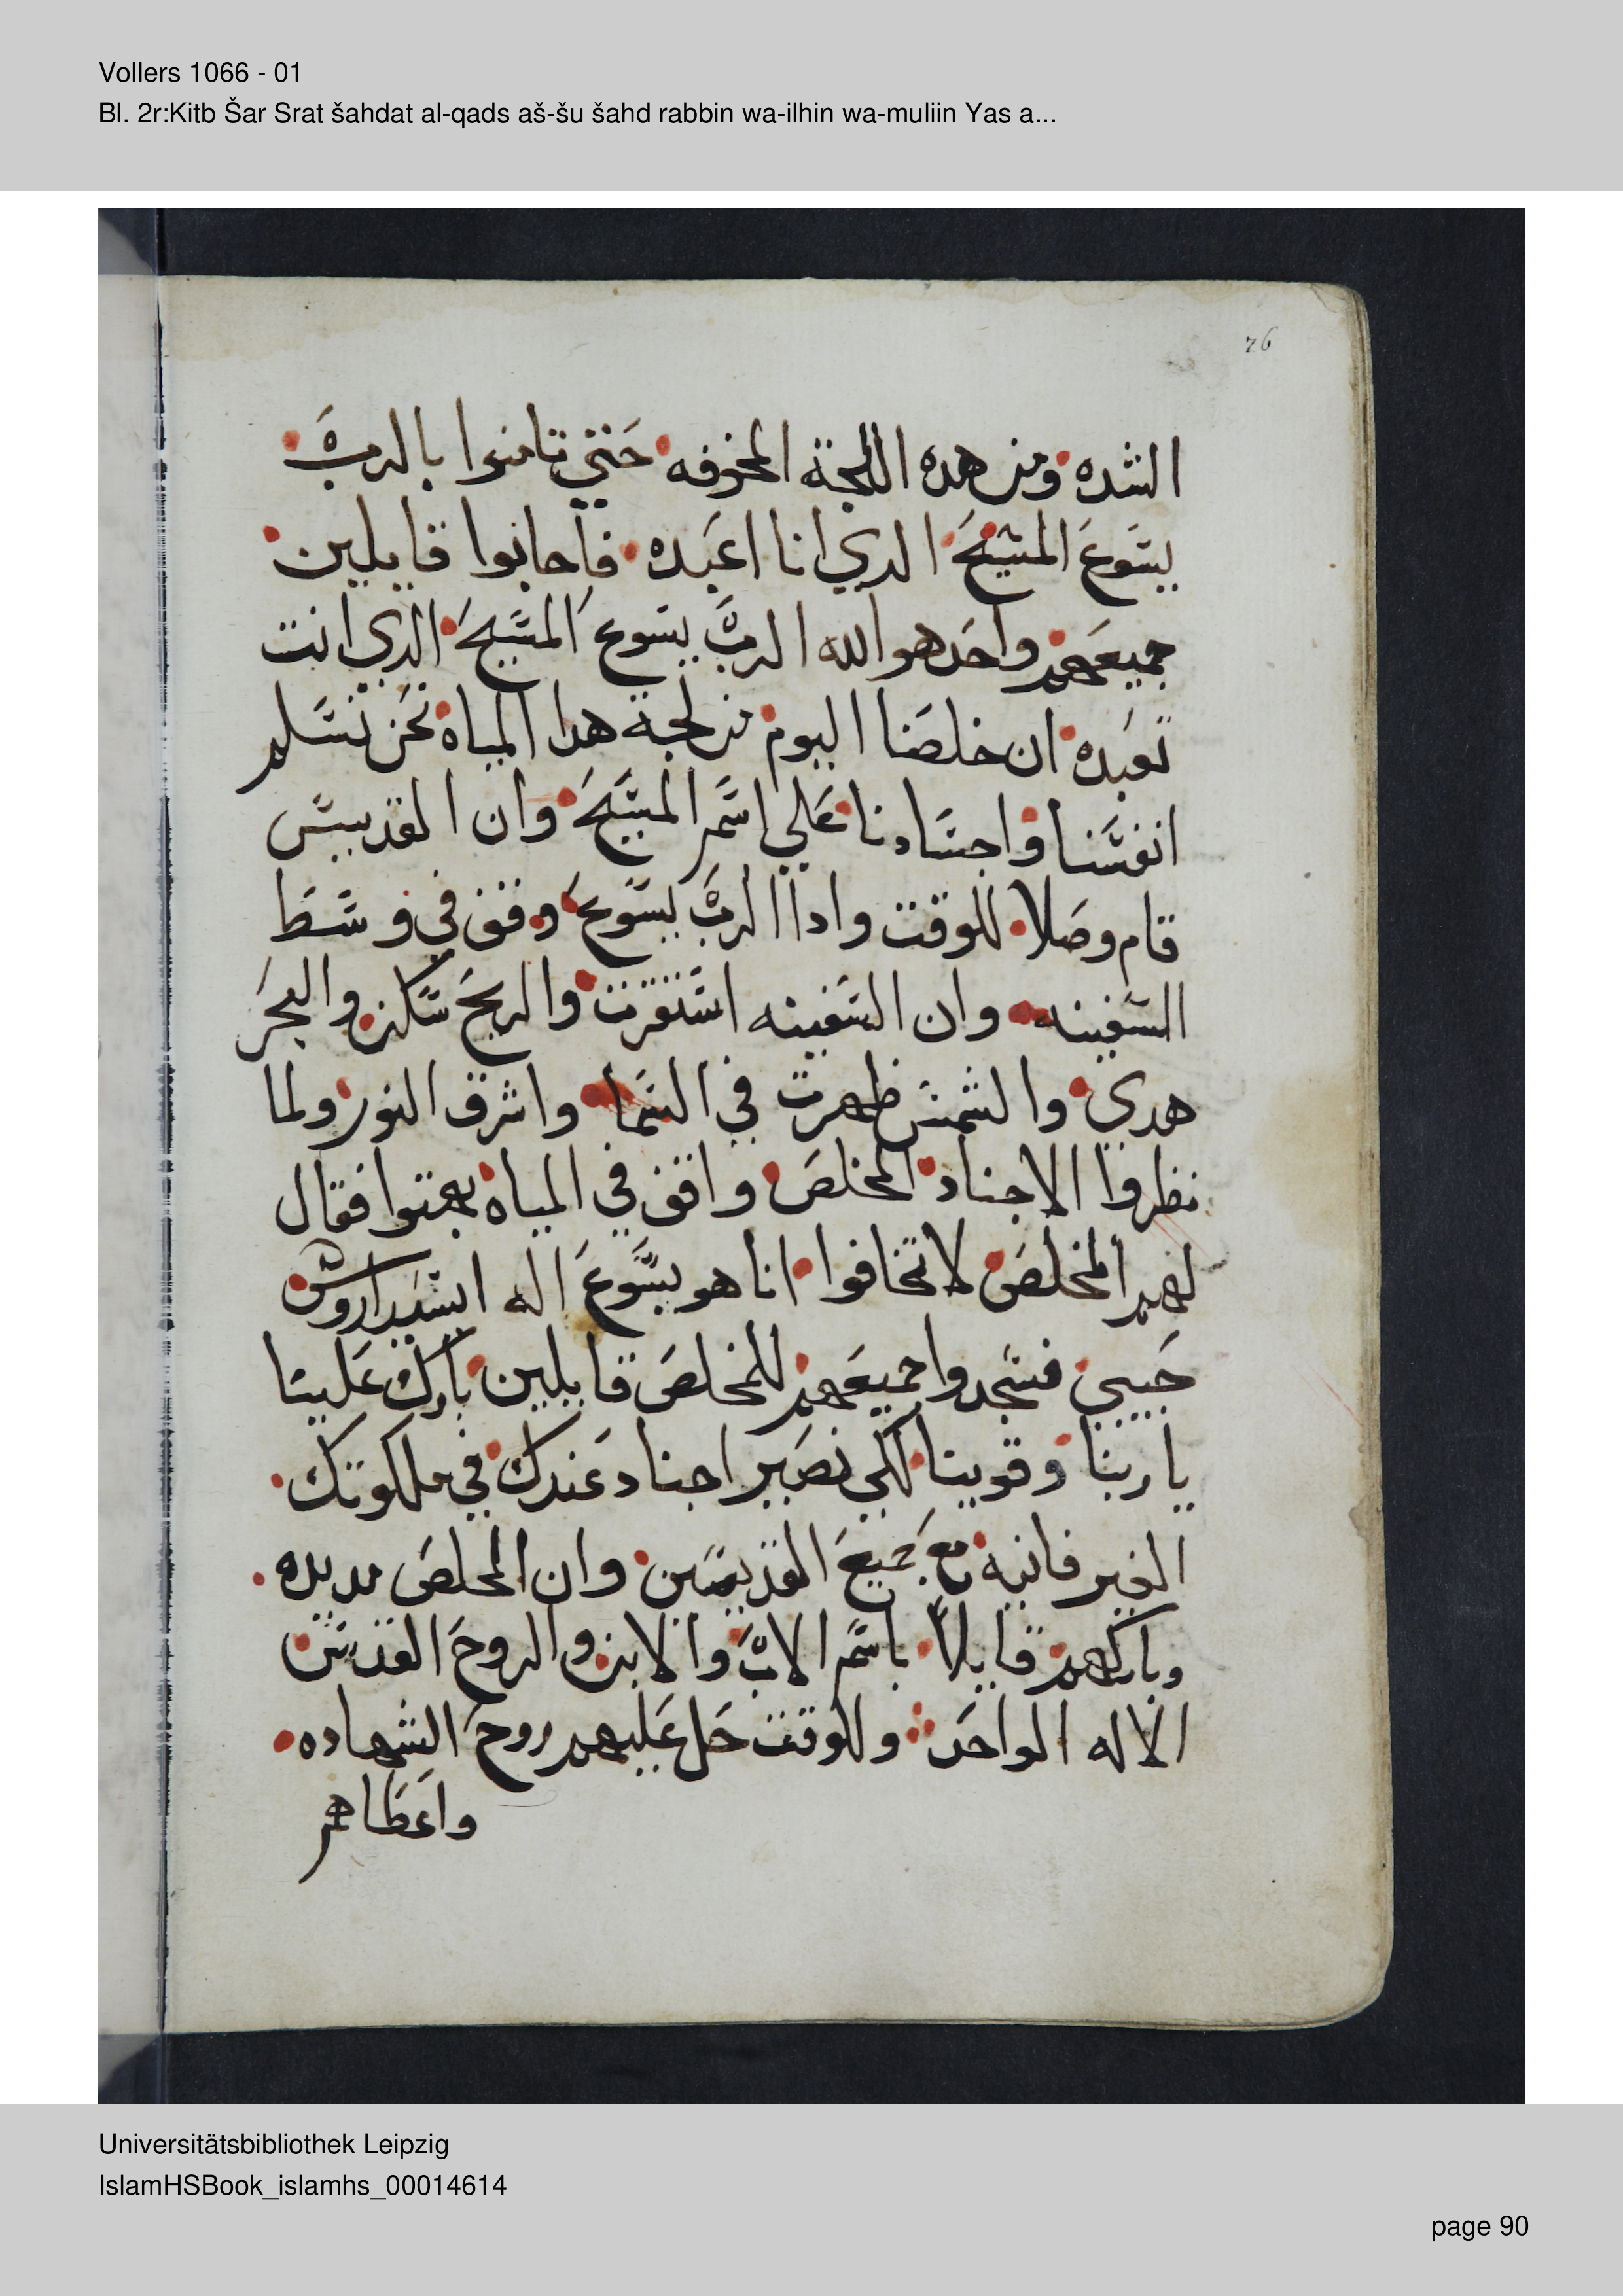 Vollers 1066 - 01
Bl. 2r:Kitb Šar Srat šahdat al-qads aš-šu šahd rabbin wa-ilhin wa-muliin Yas a...
76
الشده ومن هده اللجة المخوفه حتي تامنوا بالرب
يسوع المسيح الدي انا اعبده فاجابوا قايلين
جميعهم واحد هو الله الرب يسوع المسيح الدي انت
تعبده ان خلصنا اليوم من لجة هدا المياه نحن نسلم
انفسنا واجسادنا علي اسم المسيح وان القديس
قام وصلا للوقت وادا الرب يسوع وقف في وسط
السفينه وان السفينه استقرت والريح سكن والبحر
هدي والشمس ظهرت في السما واشرق النور ولما
نظروا الاجناد المخلص واقف في المياه بهتوا فقال
لهم المخلص لا تخافوا انا هو يسوع اله
حبيبي فسجدوا جميعهم للمخلص قايلين بارك علينا
يا ربنا وقوينا لكي نصير اجناد عندك في ملكوتك
الغير فانية مع جميع القديسين وان المخلص مد يده
وباركهم قايلاً باسم الاب والابن والروح القدس
الاله الواحد وللوقت حل عليهم روح الشهاده
واعطاهم
Universitätsbibliothek Leipzig
IslamHSBook_islamhs_00014614
page 90